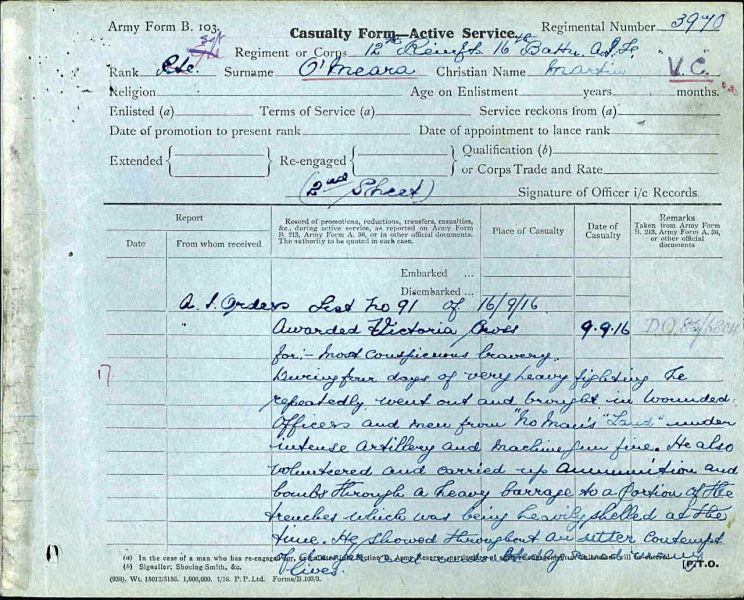 Army Form B. 103.
Casualty Form—Active Service.
Regimental Number 3970
Regiment or Corps 12th Reinfts. 16th Battn. A.I.F.
Rank Pte. Surname O'Meara Christian Name Martin V.C.
Religion Age on Enlistment years months.
Enlisted (a) Terms of Service (a) Service reckons from (a)
Date of promotion to present rank Date of appointment to lance rank
Extended Re-engaged Qualification (b)
or Corps Trade and Rate
(2nd Sheet) Signature of Officer i/c Records.
Report
Date From whom received
Record of promotions, reductions, transfers, casualties,
&c., during active service, as reported on Army Form
B. 213, Army Form A. 36, or in other official documents.
The authority to be quoted in each case.
Place of Casualty
Date of
Casualty
Remarks
Taken from Army Form
B. 213, Army Form A. 36,
or other official
documents
Embarked ...
Disembarked ...
A.I. Orders List No 91 of 16/9/16
Awarded Victoria Cross 9.9.16 D.O.
for:- most conspicuous bravery.
During four days of very heavy fighting he
repeatedly went out and brought in wounded
17
Officers and men from "No Man's "Land" under
intense Artillery and Machine gun fire. He also
volunteered and carried up Ammunition and
bombs through a heavy barrage to a portion of the
trenches which was being heavily shelled at the
time. He showed throughout an utter contempt
of danger and saved many
lives.
(a) In the case of a man who has re-engaged for,
(b) Signaller, Shoeing Smith, &c. [P.T.O.
(938). Wt. 15012/3156. 1,000,000. 1/16. P. P. Ltd. Forms/B.103/3.